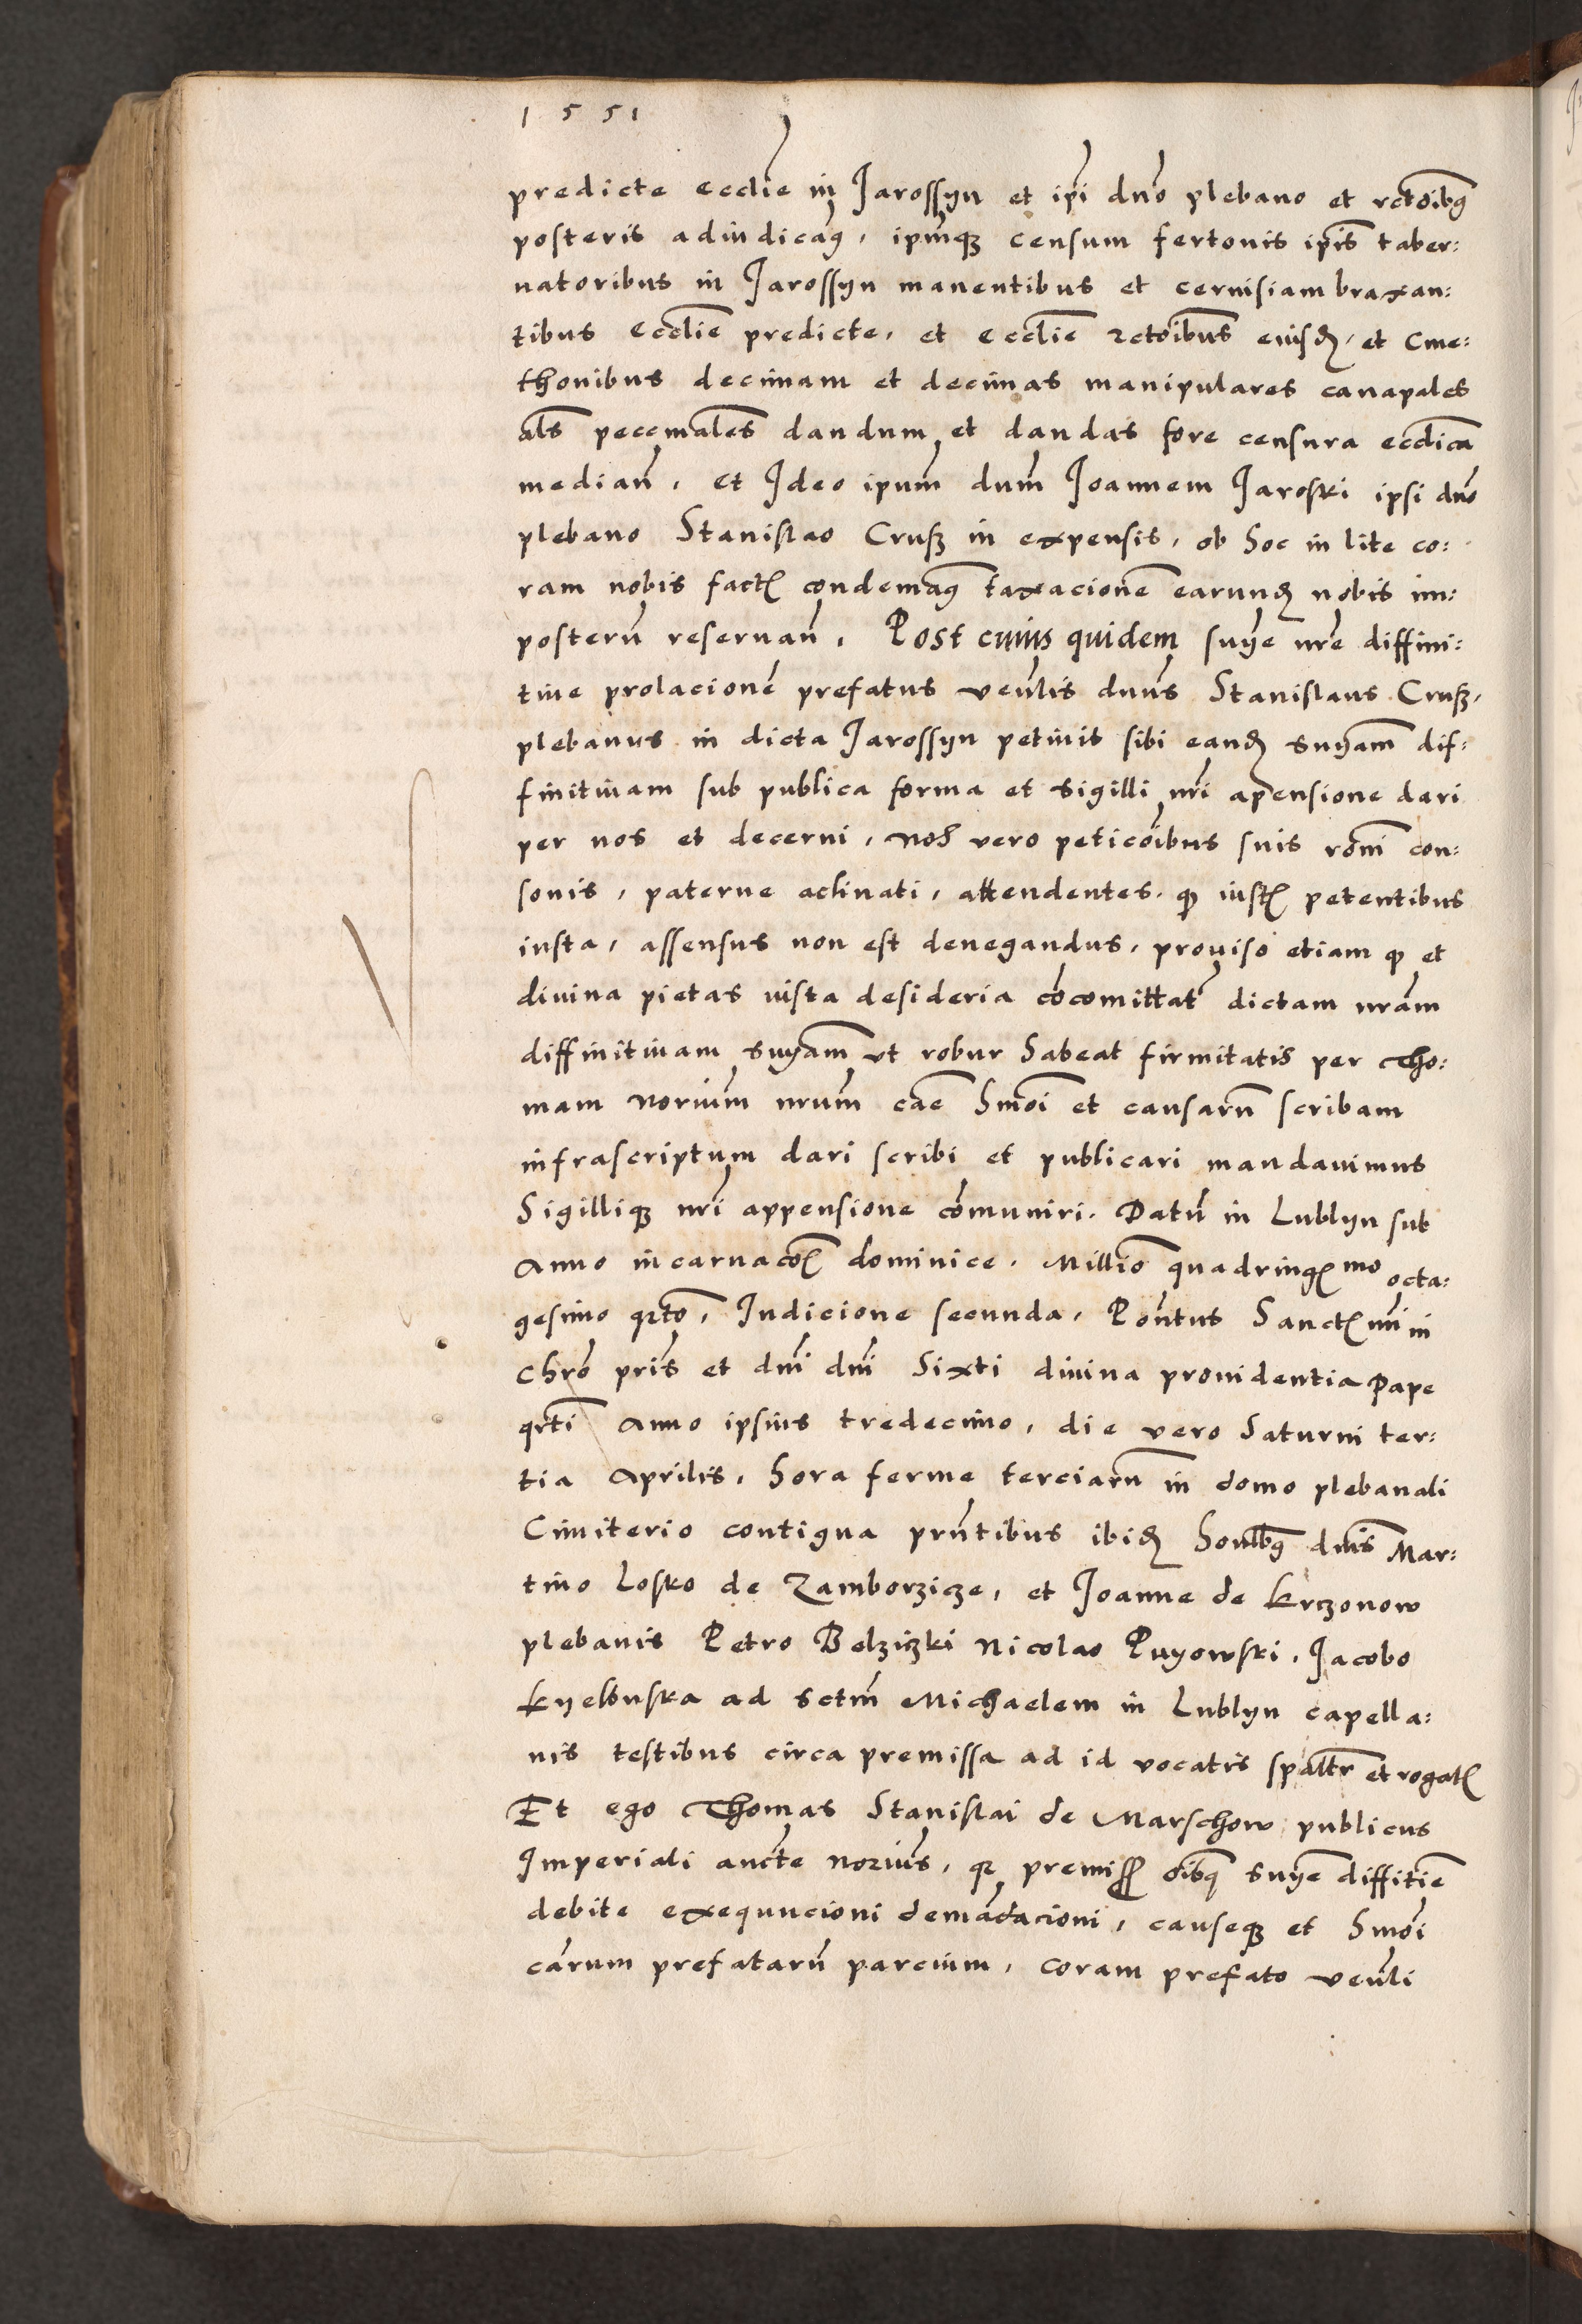 1551
predicte ecclie in Jarossyn et ipi dno plebano et rctoibus
posteris adiudicamus, ipmque censum fertonis ipis taber:
natoribus in Jarossyn manentibus et ceruisiam braxan:
tibus ecclie predicte, et ecclie rctoibus eiusdem, et Cme:
thonibus decimam et decimas manipulares canapales
als peccmales dandum et dandas fore censura ecclica
median, et Ideo ipum dum Joannem Jaroski ipsi dno
plebano Stanislao Crusz in expensis, ob hoc in lite co:
ram nobis factis condemamus taxacionem earundem nobis im:
posterum reseruan, Post cuius quidem snye nre diffini:
tiue prolacionem prefatus venlis dnus Stanislaus Crusz,
plebanus in dicta Jarossyn petiuit sibi eandem snyam dif:
finitiuam sub publica forma et sigilli nri apensione dari
per nos et decerni, nos vero peticoibus suis roni con:
sonis, paterne aclinati, attendentes, quod iustis petentibus
iusta, assensus non est denegandus, prouiso etiam quod et
diuina pietas iusta desideria cocomittat dictam nram
diffinitiuam snyam vt robur habeat firmitatis per Tho:
mam norium nrum cae hmoi et causarum scribam
infrascriptum dari scribi et publicari mandauimus
Sigillique nri appensione comuniri. Datum in Lublyn sub
Anno incarnacois dominice. Millio quadringmo octa:
gesimo qrto, Indicione secunda, Pontus Sanctismi in
Chro pris et dni dni Sixti diuina prouidentia Pape
qrti Anno ipsius tredecimo, die vero Saturni ter:
tia Aprilis, hora ferme terciarum in domo plebanali
Cimiterio contigua prntibus ibidem honlibus dnis Mar:
tino Losko de Zamborzicze, et Joanne de Krczonow
plebanis Petro Belziczki Nicolao Puyowski, Jacobo
Kyelbuska ad sctm Michaelem in Lublyn capella:
nis testibus circa premissa ad id vocatis spalitr et rogatis
Et ego Thomas Stanislai de Marschow publicus
Imperiali aucte norius, quia premissis oibusque snye diffitie
debite exequucioni demadacioni, causeque et hmoi
carum prefatarum parcium, coram prefato venli